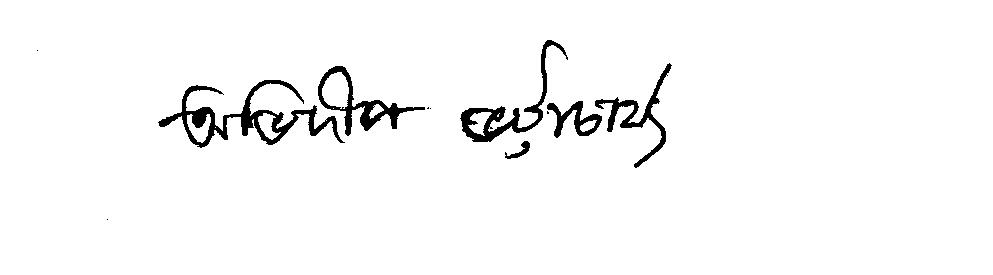 অভিদীপ ভট্টাচার্য